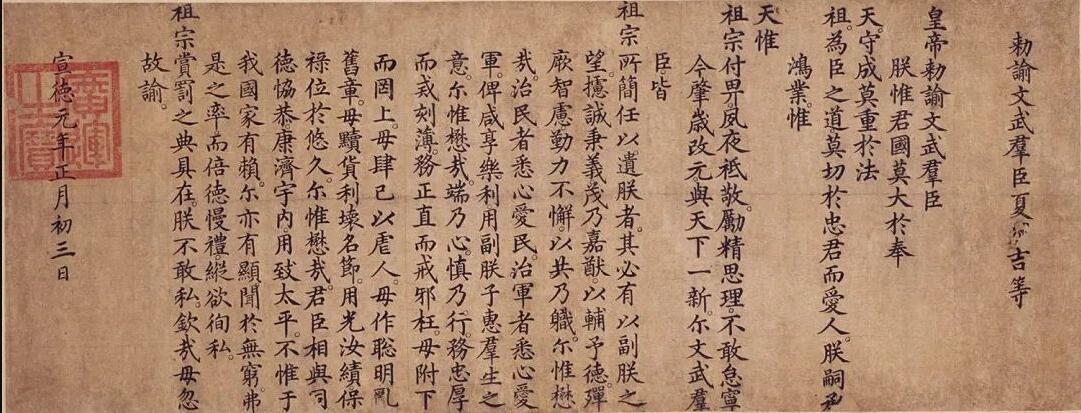 勅諭文武羣臣夏吉等
皇帝勅諭文武羣臣
朕惟君國莫大於奉
天。守成莫重於法
祖。為臣之道。莫切於忠君而愛人。朕嗣承
鴻業。惟
天惟
祖宗付畀。夙夜祗敬。勵精思理。不敢怠寧
今肇歲改元。與天下一新。尔文武羣
臣。皆
祖宗所簡任以遺朕者。其必有以副朕之
望。攄誠秉義。茂乃嘉猷。以輔予德。殫
厥智慮。勤力不懈。以共乃職。尔惟懋
哉。治民者悉心愛民。治軍者悉心愛
軍。俾咸享樂利。用副朕子惠羣生之
意。尔惟懋哉。端乃心。慎乃行。務忠厚
而戒刻薄。務正直而戒邪枉。毋附下
而罔上。毋肆己以虐人。毋作聰明亂
舊章。毋黷貨利壞名節。用光汝績。保
祿位於悠久。尔惟懋哉。君臣相與。同
德恊恭。康濟宇內。用致太平。不惟于
我國家有賴。尔亦有顯聞於無窮。弗
是之率。而倍德慢禮。縱欲徇私。
祖宗賞罰之典具在。朕不敢私。欽哉毋忽
故諭。
宣德元年正月初三日
廣運之寶